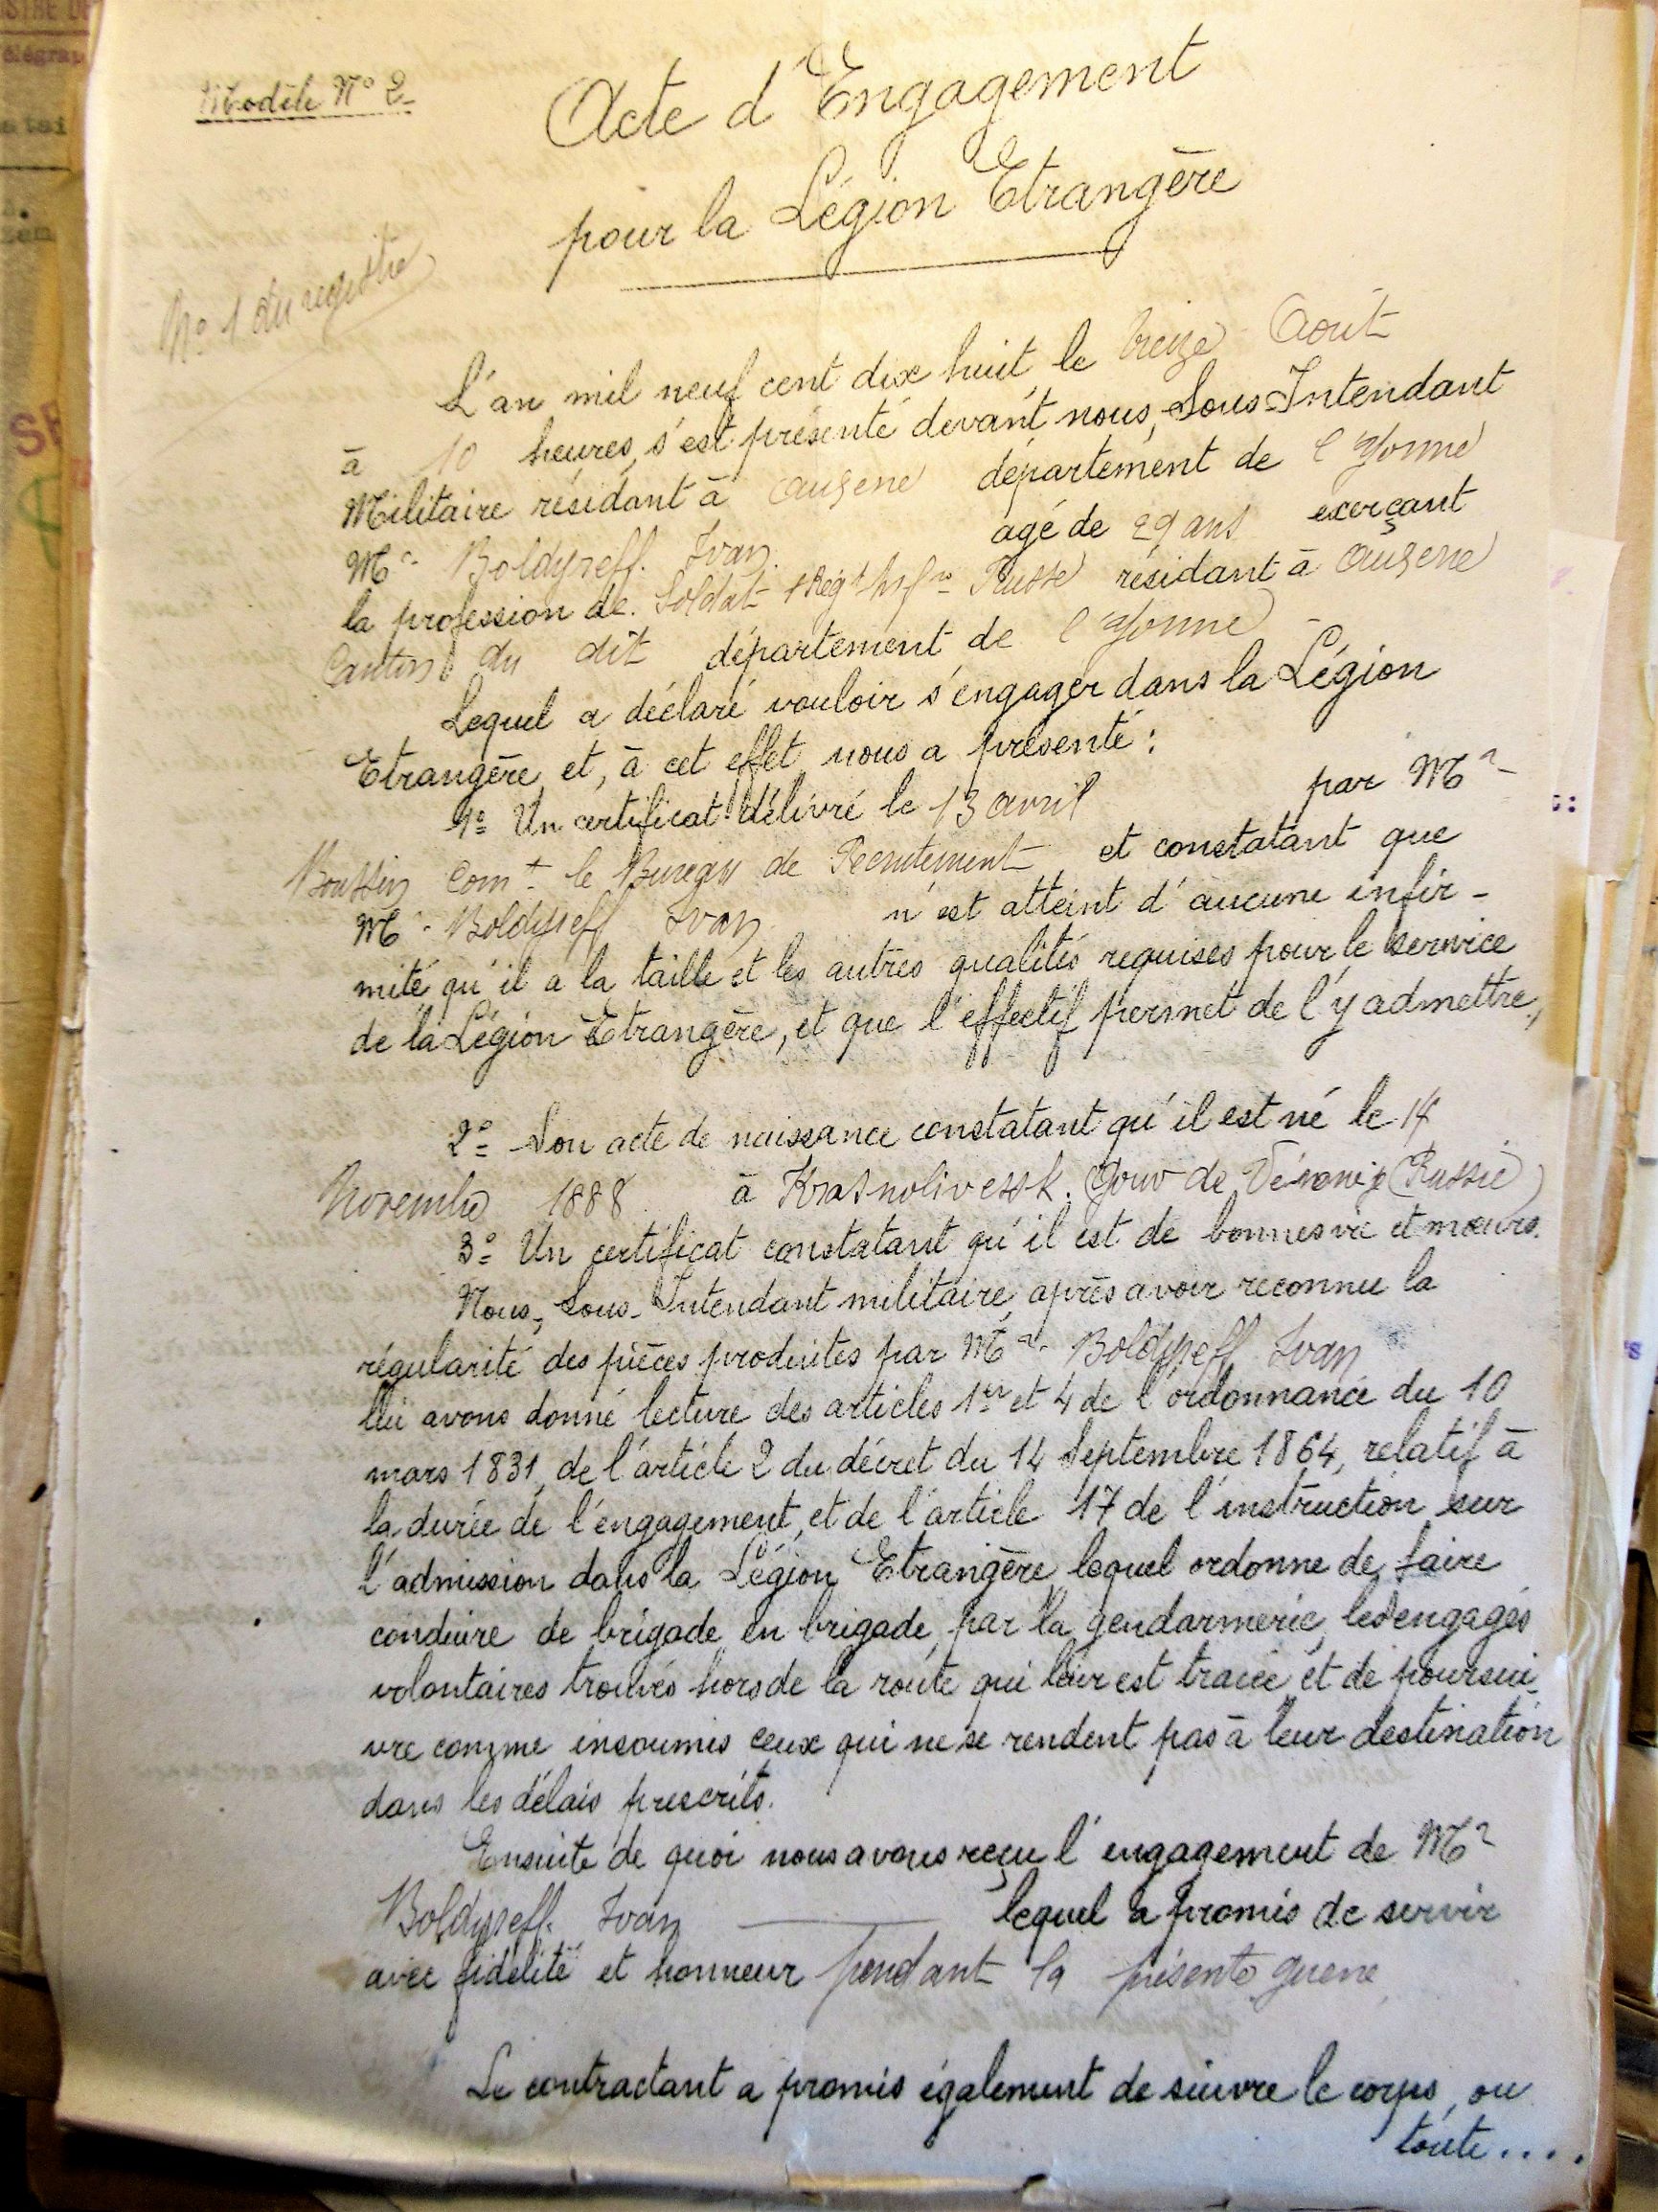 Modèle N° 2
Acte d'Engagement
pour la Légion Etrangère
N° 1 du registre
L'an mil neuf cent dix huit, le treize Août
à 10 heures, s'est présenté devant nous, Sous-Intendant
Militaire résidant à département de l'Yonne
Mr. Boldyreff. Ivan. agé de 29 ans exerçant
la profession de. Soldat 1 Régt Russe résidant à
Canton du dit département de l'Yonne
Lequel a déclaré vouloir s'engager dans la Légion
Etrangère, et, à cet effet nous a présenté :
1° Un certificat délivré le 13 avril par Mr
Comt le Bureau de Recrutement et constatant que
Mr. Boldyreff Ivan n'est atteint d'aucune infir-
mité qu'il a la taille et les autres qualités requises pour le service
de la Légion Etrangère, et que l'effectif permet de l'y admettre,
2° Son acte de naissance constatant qu'il est né le
Novembre 1888 à Gouv de (Russie)
3° Un certificat constatant qu'il est de bonnes vie et mœurs.
Nous, Sous-Intendant militaire, après avoir reconnu la
régularité des pièces produites par Mr. Boldyreff Ivan
lui avons donné lecture des articles 1er et 4 de l'ordonnance du 10
mars 1831, de l'article 2 du décret du 14 Septembre 1864, relatif à
la durée de l'engagement, et de l'article 17 de l'instruction sur
l'admission dans la Légion Etrangère, lequel ordonne de faire
conduire de brigade en brigade, par la gendarmerie, les engagés
volontaires trouvés hors de la route qui leur est tracée et de poursui-
vre comme insoumis ceux qui ne se rendent pas à leur destination
dans les délais prescrits.
Ensuite de quoi nous avons reçu l'engagement de Mr
Boldyreff. Ivan lequel a promis de servir
avec fidélité et honneur pendant la présente guerre
Le contractant a promis également de suivre le corps, ou
toute....